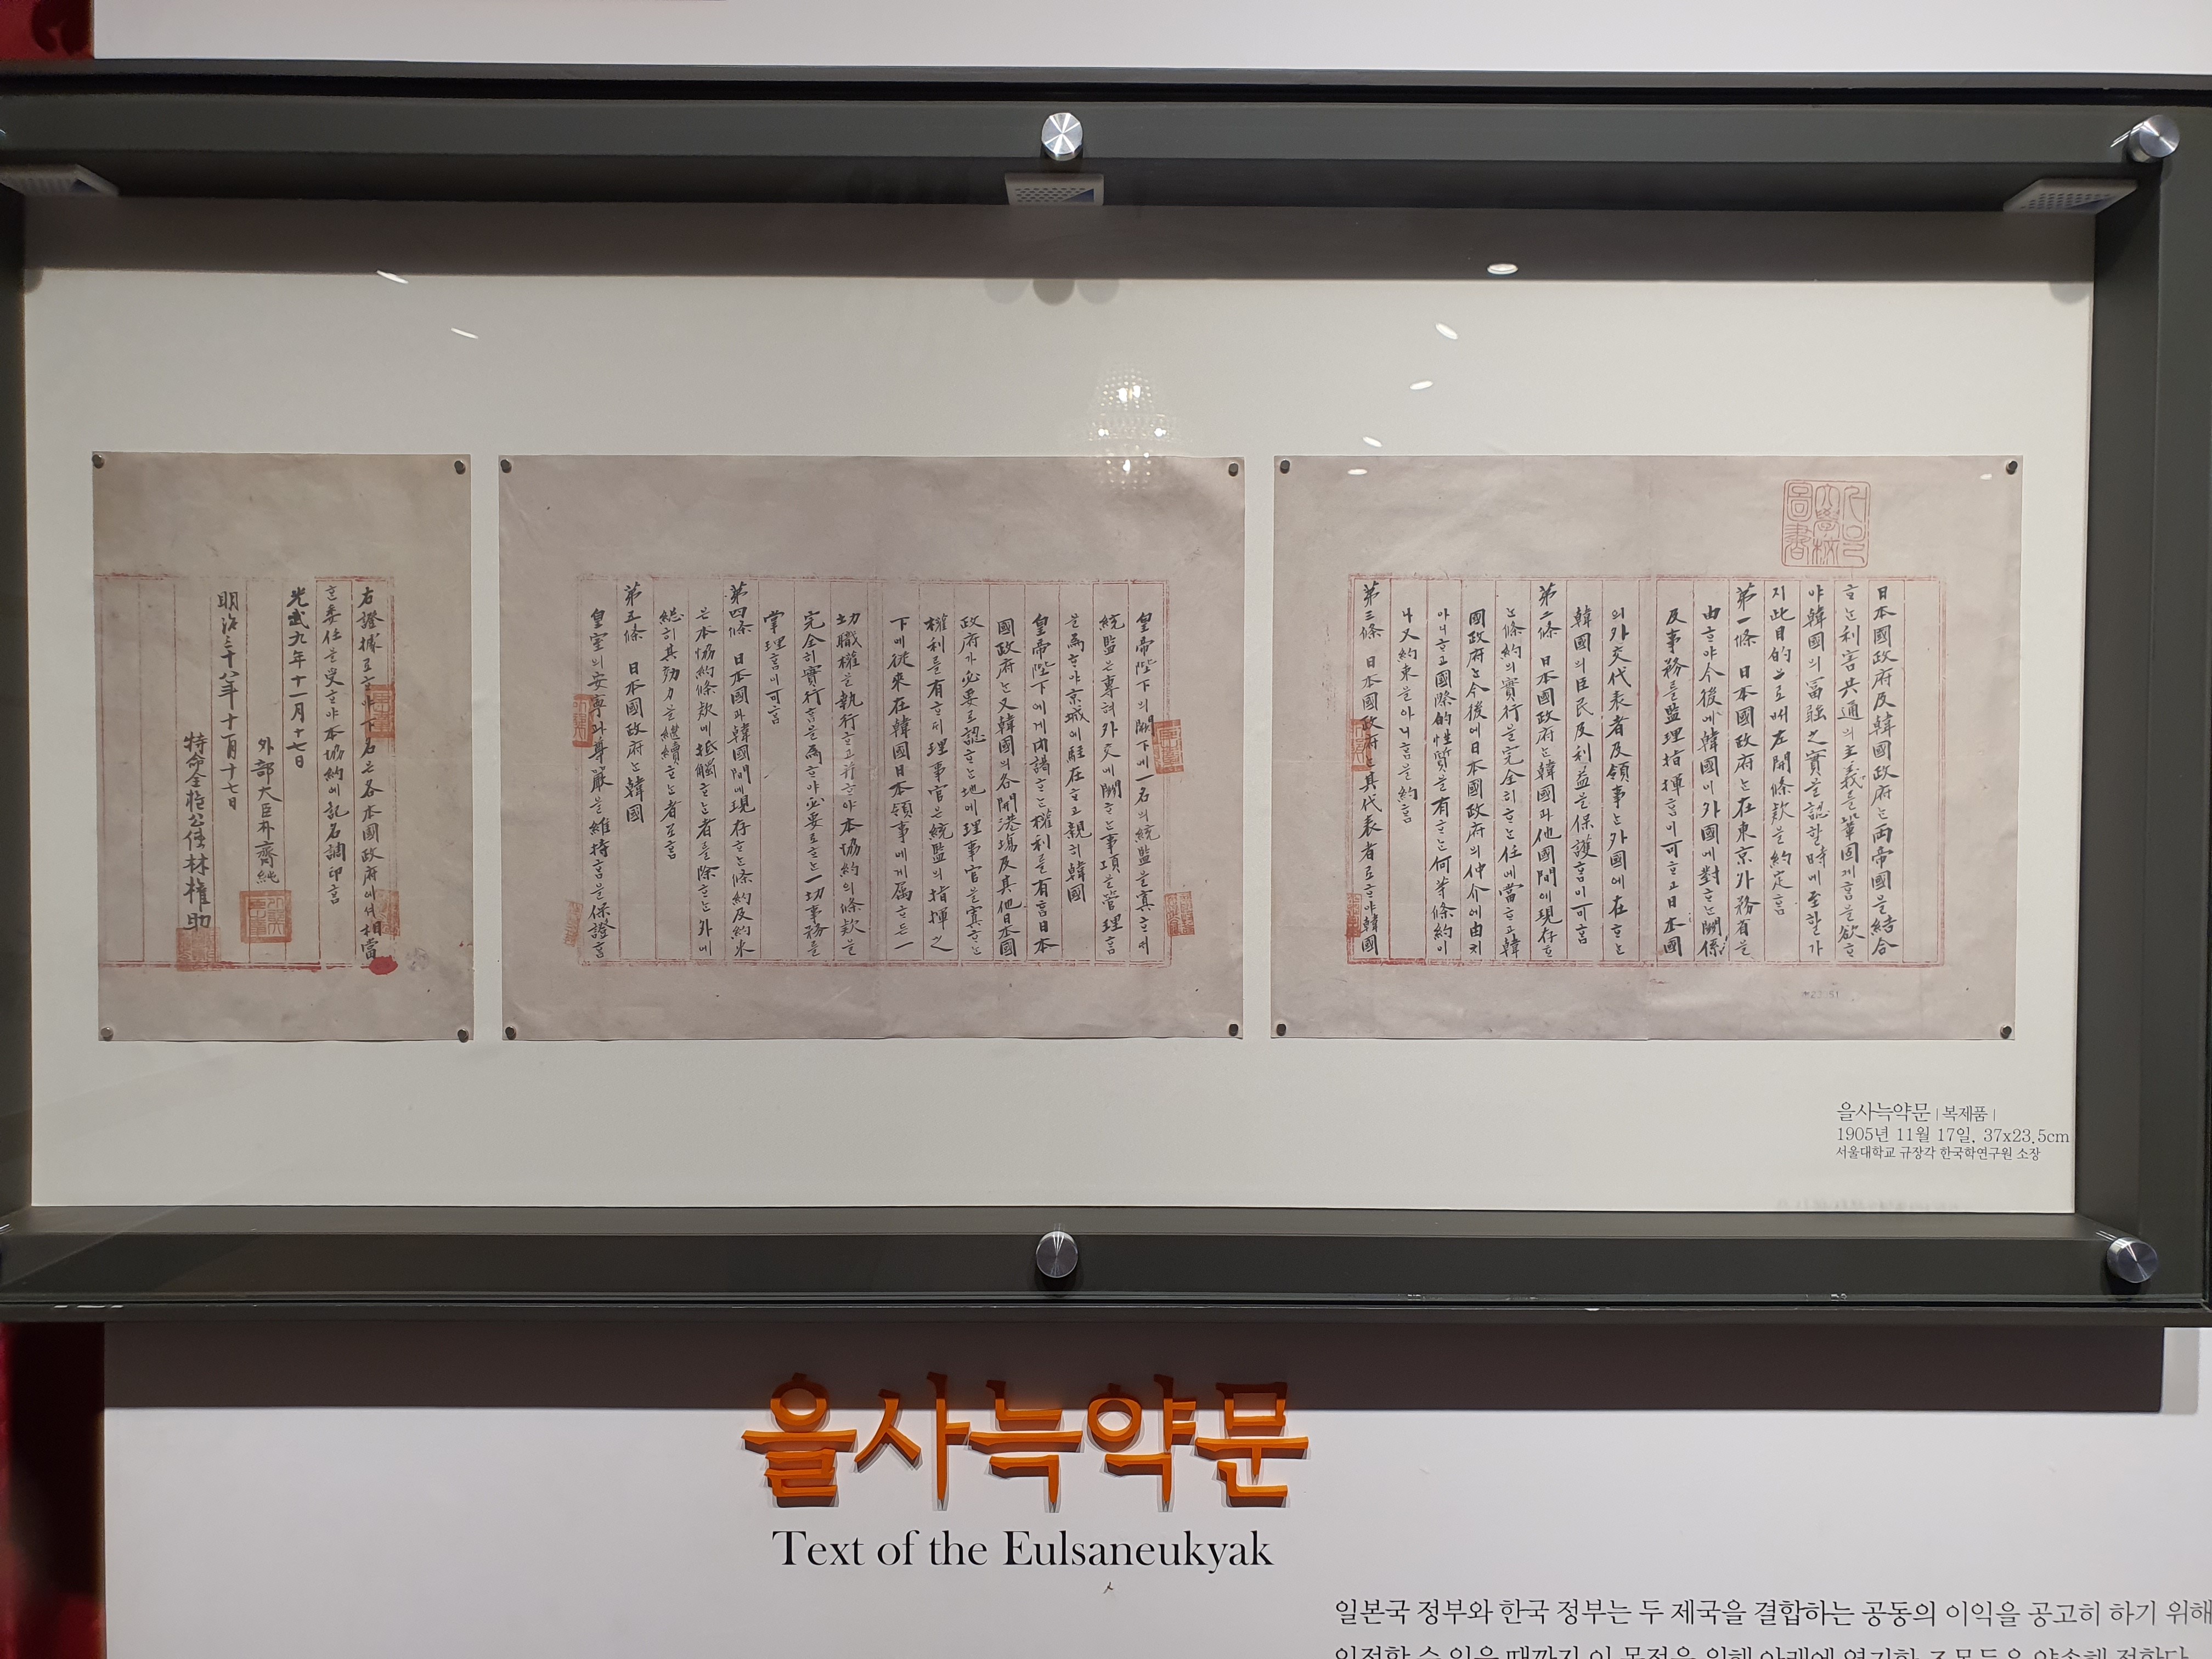 日本國政府及韓國政府는両帝國을結合
ᄒᆞ는利害共通의主義를鞏固케ᄒᆞᆷ을欲ᄒᆞ
야韓國의冨強之實을認할時에至할가
지此目的으로써左開條款을約定ᄒᆞᆷ
第一條 日本國政府는在東京外務省을
由ᄒᆞ야今後에韓國이外國에對ᄒᆞ는關係
及事務를監理指揮ᄒᆞᆷ이可ᄒᆞ고日本國
의外交代表者及領事는外國에在ᄒᆞ는
韓國의臣民及利益을保護ᄒᆞᆷ이可ᄒᆞᆷ
第二條 日本國政府는韓國과他國間에現存ᄒᆞ
는條約의實行을完全히ᄒᆞ는任에當ᄒᆞ고韓
國政府는今後에日本國政府의仲介에由치
아니ᄒᆞ고國際的性質을有ᄒᆞ는何等條約이
나又約束을아니ᄒᆞᆷ을約ᄒᆞᆷ
第三條 日本國政府는其代表者로ᄒᆞ야韓國
皇帝陛下의闕下에一名의統監을寘ᄒᆞ되
統監은專혀外交에關ᄒᆞ는事項을管理ᄒᆞᆷ
을爲ᄒᆞ야京城에駐在ᄒᆞ고親히韓國
皇帝陛下에게內謁ᄒᆞ는權利를有ᄒᆞᆷ日本
國政府는又韓國의各開港場及其他日本國
政府가必要로認ᄒᆞ는地에理事官을寘ᄒᆞ는
權利를有ᄒᆞ되理事官은統監의指揮之
下에從來在韓國日本領事에게屬ᄒᆞ든一
切職權을執行ᄒᆞ고幷ᄒᆞ야本協約의條款을
完全히實行ᄒᆞᆷ을爲ᄒᆞ야必要로ᄒᆞ는一切事務를
掌理ᄒᆞᆷ이可ᄒᆞᆷ
第四條 日本國과韓國間에現存ᄒᆞ는條約及約束
은本協約條款에抵觸ᄒᆞ는者를除ᄒᆞ는外에
總히其効力을繼續ᄒᆞ는者로ᄒᆞᆷ
第五條 日本國政府는韓國
皇室의安寧과尊嚴을維持ᄒᆞᆷ을保證ᄒᆞᆷ
右證據로ᄒᆞ야下名은各本國政府에셔相當
ᄒᆞᆫ委任을受ᄒᆞ야本協約에記名調印ᄒᆞᆷ
光武九年十一月十七日
外部大臣朴齊純
明治三十八年十一月十七日
特命全權公使林權助
을사늑약문 | 복제품 |
1905년 11월 17일, 37x23.5cm
서울대학교 규장각 한국학연구원 소장
을사늑약문
Text of the Eulsaneukyak
일본국 정부와 한국 정부는 두 제국을 결합하는 공동의 이익을 공고히 하기 위해